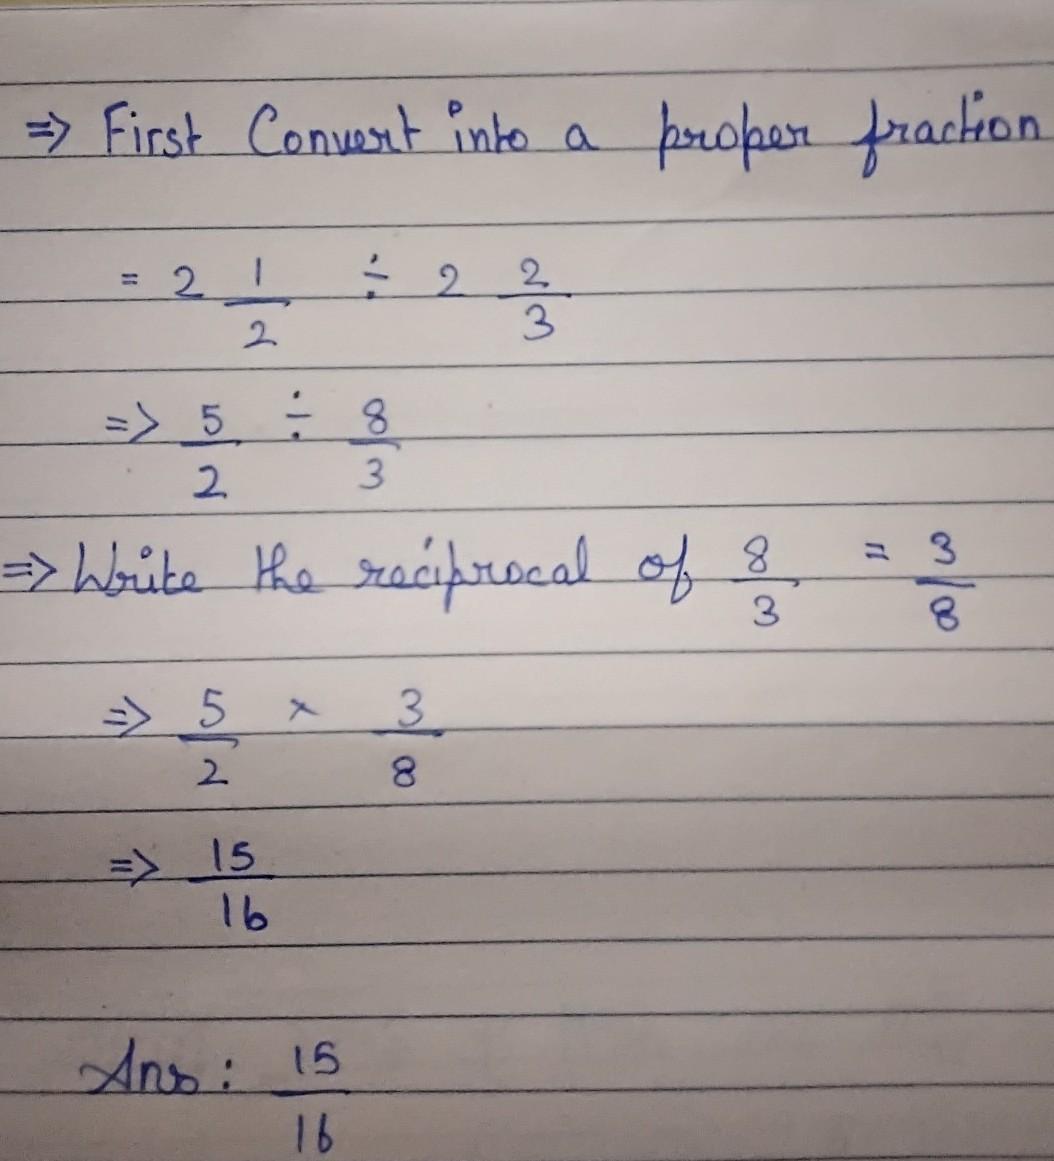 ⇒ First Convert into a proper fraction
= 2 1/2 ÷ 2 2/3
⇒ 5/2 ÷ 8/3
⇒ Write the reciprocal of 8/3 = 3/8
⇒ 5/2 × 3/8
⇒ 15/16
Ans : 15/16